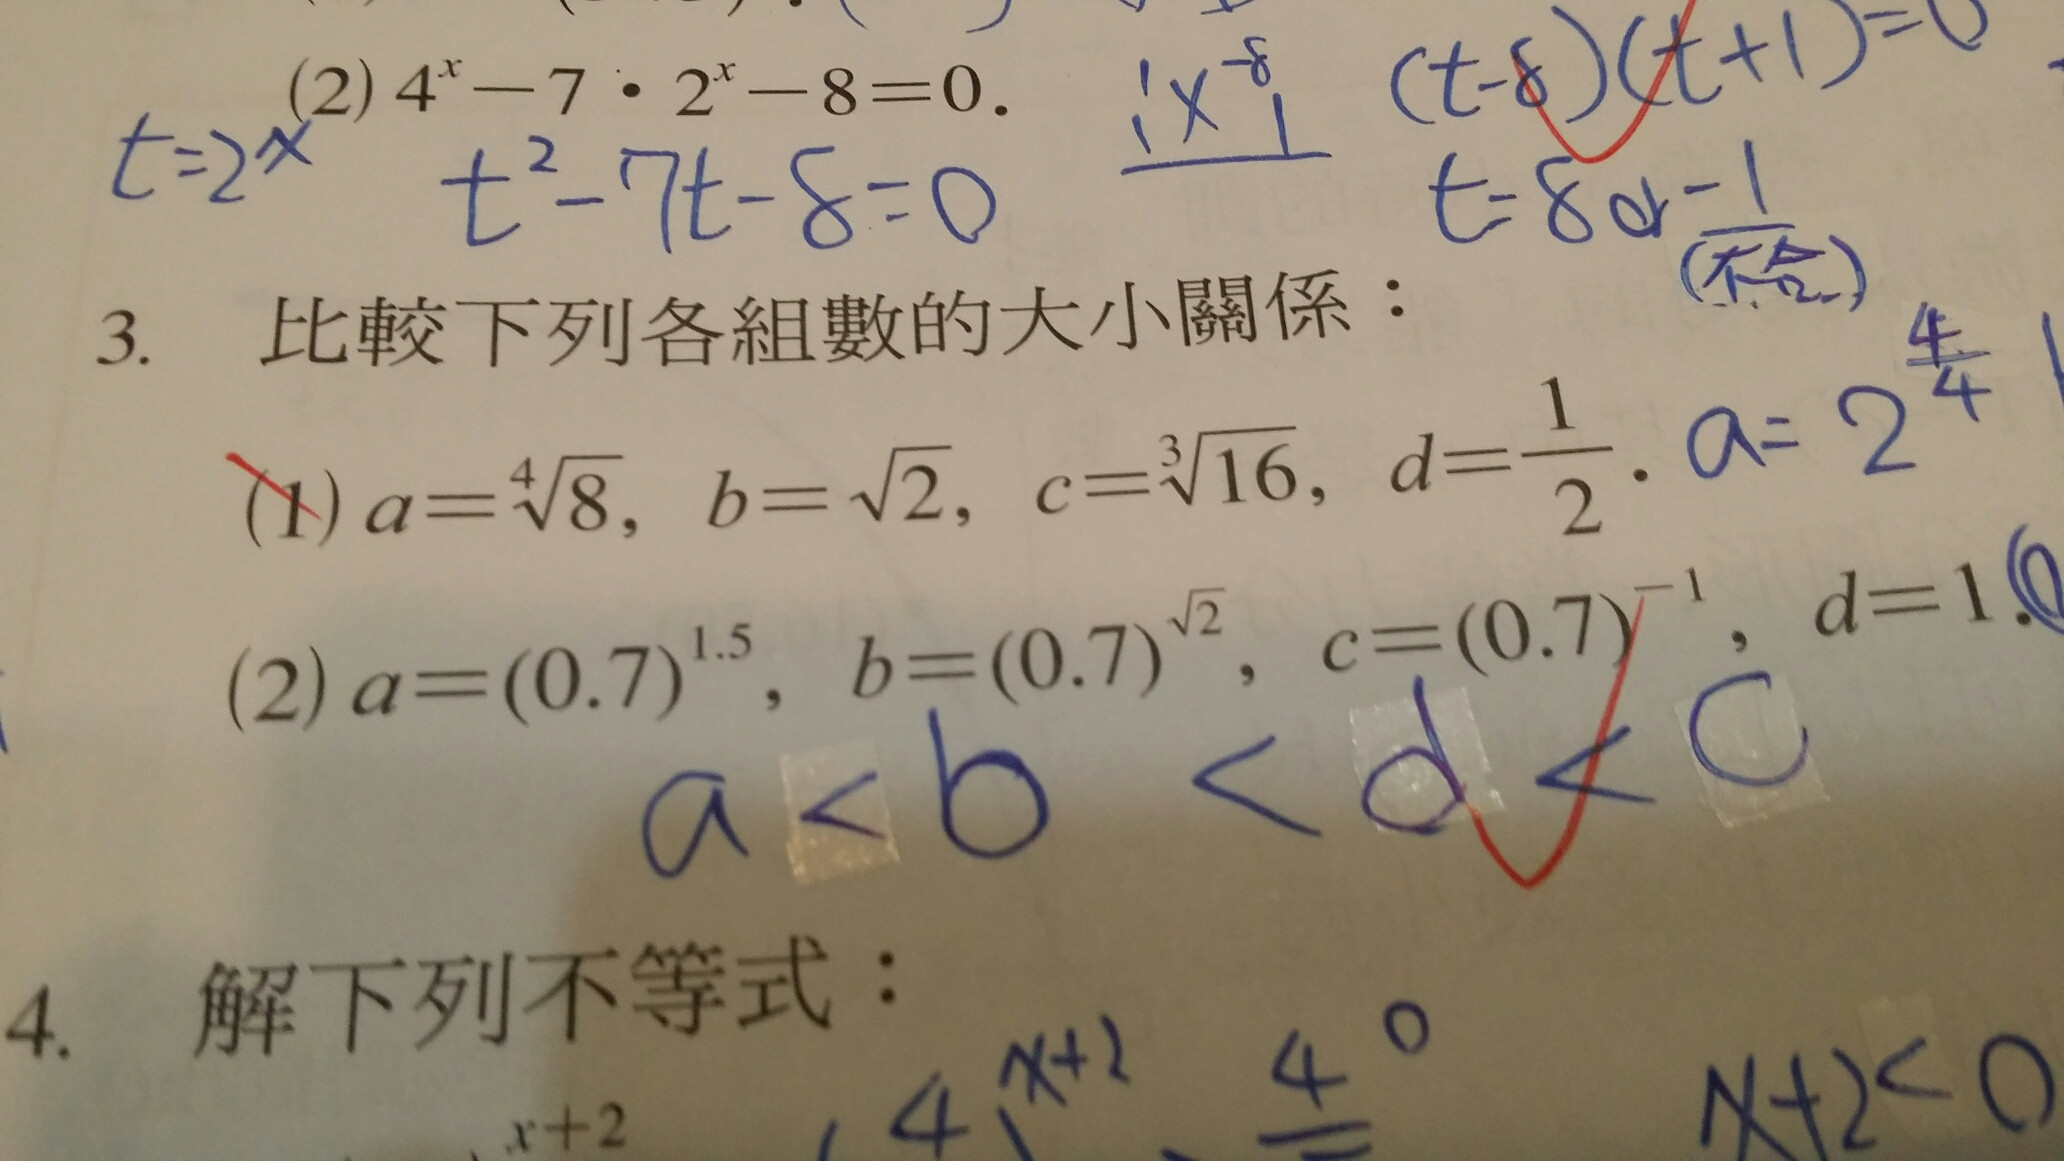 (2) 4ˣ－7・2ˣ－8＝0.
1 -8
1 1
(t-8)(t+1)=0
t=2ˣ
t²-7t-8=0
t=8 or -1
(不合)
3. 比較下列各組數的大小關係：
(1) a＝⁴√8, b＝√2, c＝³√16, d＝1/2.
a= 2^(4/4)
(2) a＝(0.7)^1.5, b＝(0.7)^√2, c＝(0.7)^－1, d＝1.
a < b < d < c
4. 解下列不等式：
x＋2
4 x+2
4⁰
x+2<0